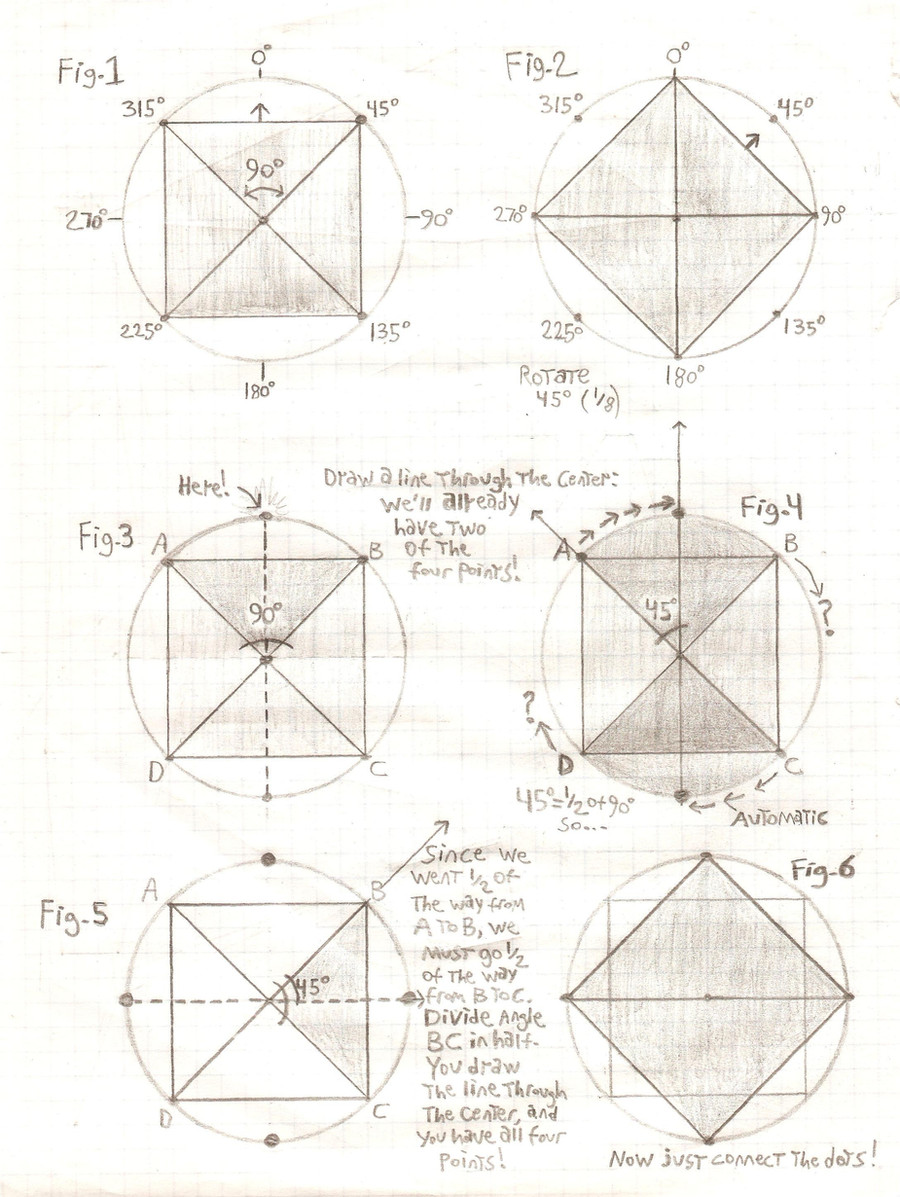 Fig-1
0°
315°
45°
90°
270°
90°
225°
135°
180°
Fig-2
0°
315°
45°
270°
90°
225°
135°
180°
Rotate
45° (1/8)
Fig-3
Here!
A
B
90°
D
C
Draw a line Through The Center:
we'll already
have Two
of The
four points!
Fig-4
A
B
45°
?
?
D
C
45°=1/2 of 90°
so...
Automatic
Fig-5
A
B
45°
D
C
Since we
went 1/2 of
The way from
A To B, we
Must go 1/2
of The way
from B To C.
Divide Angle
BC in half-
You draw
The line Through
The Center, and
you have all four
points!
Fig-6
Now just connect The dots!